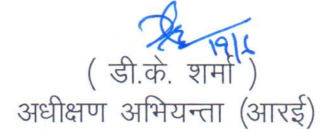 19/6
( डी.के. शर्मा )
अधीक्षण अभियन्ता (आरई)